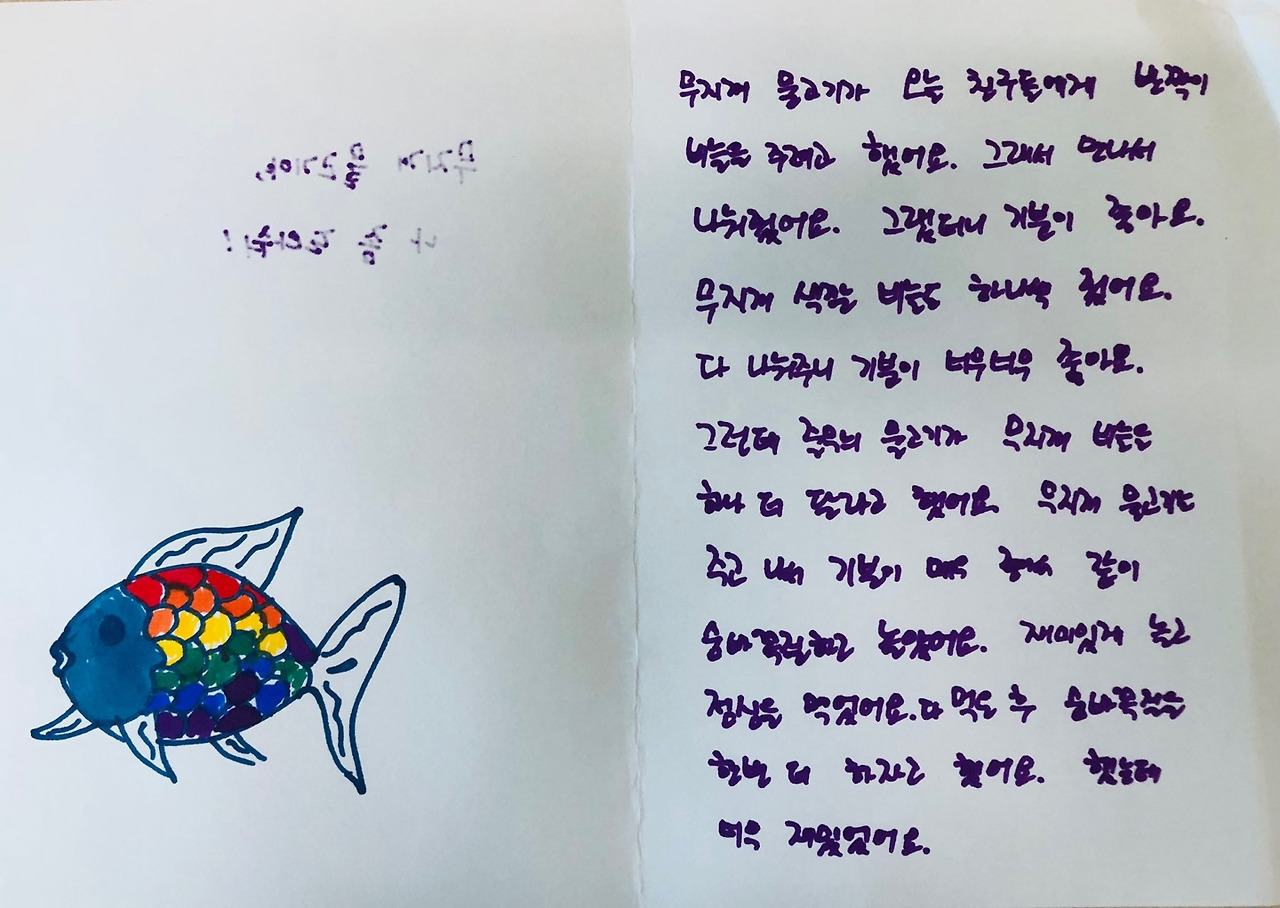 무지개 물고기야,
나 좀 도와줘!
무지개 물고기가 오늘 친구들에게 반짝이
비늘을 주려고 했어요. 그래서 만나서
나눠줬어요. 그랬더니 기분이 좋아요.
무지개 색깔 비늘도 하나씩 줬어요.
다 나눠주니 기분이 너무너무 좋아요.
그런데 줄무늬 물고기가 무지개 비늘을
하나 더 달라고 했어요 무지개 물고기는
주고 나서 기분이 매우 좋아서 같이
숨바꼭질하고 놀았어요. 재미있게 놀고
점심을 먹었어요. 다 먹은 후 숨바꼭질을
한번 더 하자고 했어요. 했는데
너무 재밌었어요.